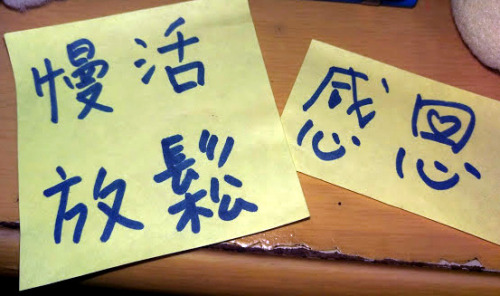 慢活
放鬆
感恩